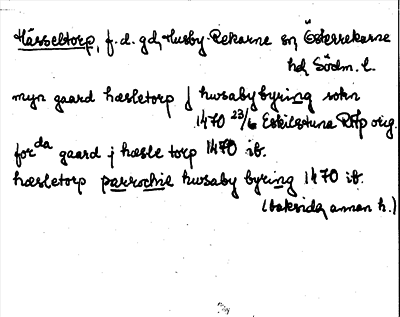 Hässeltorp, f.d. gd, Husby-Rekarne sn, Österrekarne
hd, Södm. l.
myn gaard hæsletorp j husaby byring sokn
1470 23/6 Eskilstuna RAp orig.
forda gaard j hæsle torp 1470 ib.
hæsletorp parrochie husaby byring 1470 ib.
(baksida, annan h.)